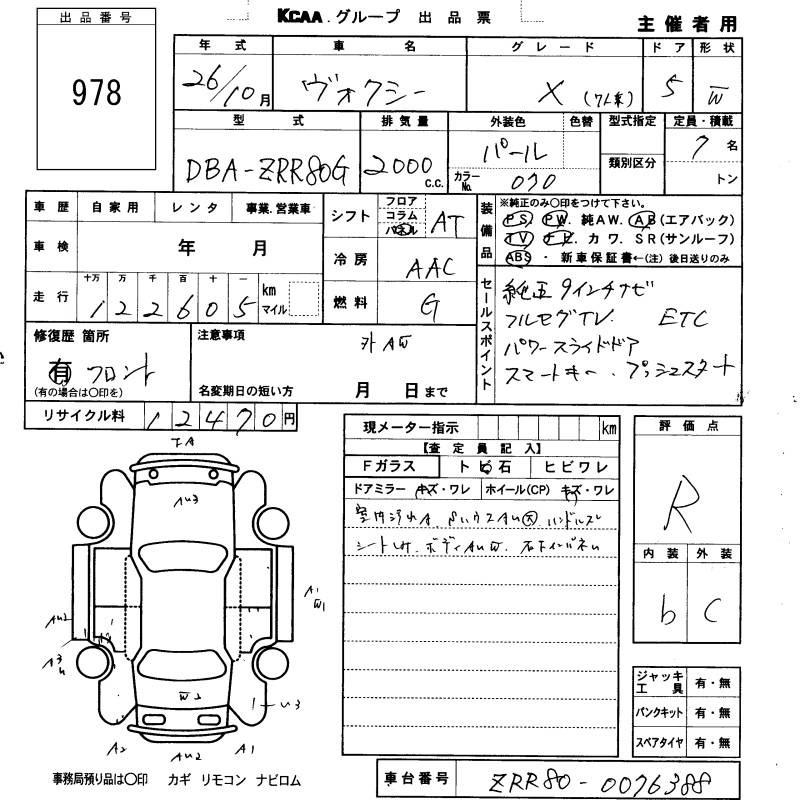 出品番号
KCAA.グループ 出品票
主催者用
978
年式
車名
グレード
ドア
形状
26/10月
ヴォクシー
X (7人乗)
5
W
型式
排気量
外装色
色替
型式指定
定員・積載
DBA-ZRR80G
2000 C.C.
パール
カラーNo. 070
類別区分
7名
トン
車歴
自家用
レンタ
事業.営業車
シフト
フロア
コラム
パネル
AT
装備品
※純正のみ○印をつけて下さい。
PS PW 純AW. AB(エアバック)
TV ナビ カワ. SR(サンルーフ)
ABS ・ 新車保証書←(注) 後日送りのみ
車検
年 月
冷房
AAC
走行
十万 万 千 百 十 一
122605
km
マイル
燃料
G
セールスポイント
純正9インチナビ
フルセグTV. ETC
パワースライドドア
スマートキー.プッシュスタート
修復歴 箇所
有 フロント
(有の場合は○印を)
注意事項
外AW
名変期日の短い方 月 日まで
リサイクル料
12470円
現メーター指示 km
【査定員記入】
Fガラス
トビ石
ヒビワレ
ドアミラー キズ・ワレ
ホイール(CP) キズ・ワレ
シート
評価点
R
内装
外装
b
C
AU3
A1
W1
AU2
A3
W2
A2
AU2
A1
ジャッキ工具 有・無
パンクキット 有・無
スペアタイヤ 有・無
事務局預り品は○印 カギ リモコン ナビロム
車台番号
ZRR80-0076388